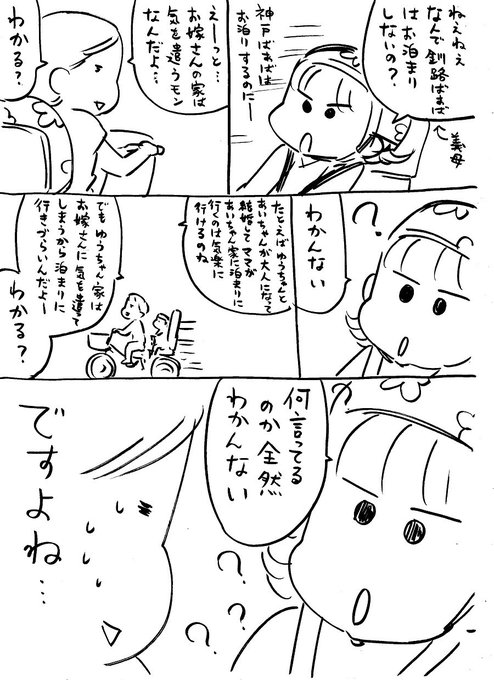 ねえねえ
なんで釧路ばぁば
はお泊まり
しないの？
義母
神戸ばぁばは
お泊りするのにー
えーっと…
お嫁さんの家は
気を遣うモン
なんだよ…
わかる？
？
わかんない
たとえばゆうちゃんと
あいちゃんが大人になって
結婚してママが
あいちゃん家に泊まりに
行くのは気楽に
行けるのね
でもゆうちゃん家は
お嫁さんに気を遣て
しまうから泊まりに
行きづらいんだよー
わかる？
何言ってる
のか全然
わかんない
？
？
？
ですよね…